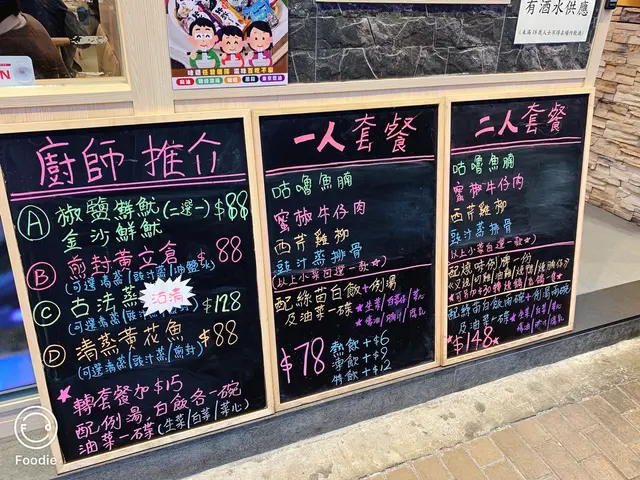 有酒水供應
廚師推介
A 椒鹽鮮魷 (二選一) $88
金沙鮮魷
B 煎封黃立倉 $88
(可選清蒸/豉汁蒸/油鹽水)
C 古法蒸 沽清 $128
D 清蒸黃花魚 $88
(可選清蒸/豉汁蒸/煎封)
轉套餐加$15
配例湯,白飯各一碗
油菜一碟(生菜/白菜/菜心)
一人套餐
咕嚕魚腩
蜜椒牛仔肉
西芹雞柳
豉汁蒸排骨
(以上小菜自選一款☆)
配絲苗白飯+例湯
及油菜一碟
$78
熱飲+$6
凍飲+$9
特飲+$12
二人套餐
咕嚕魚腩
蜜椒牛仔肉
西芹雞柳
豉汁蒸排骨
(以上小菜自選一款☆)
配燒味例牌一份
配絲苗白飯兩碗+例湯兩碗
及油菜一碟
$148
Foodie